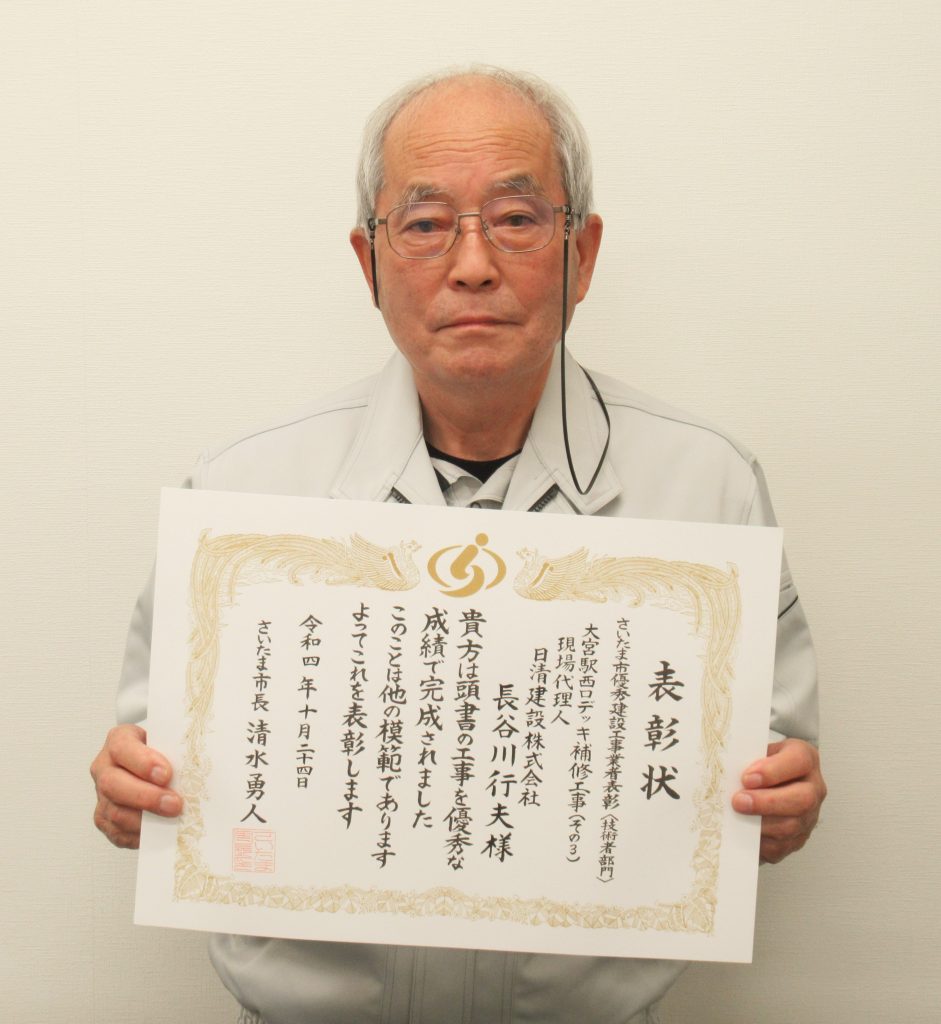 表彰状
さいたま市優秀建設工事業者表彰〈技術者部門〉
大宮駅西口デッキ補修工事(その3)
現場代理人
日清建設株式会社
長谷川行夫様
貴方は頭書の工事を優秀な
成績で完成されました
このことは他の模範であります
よってこれを表彰します
令和四年十月二十四日
さいたま市長 清水勇人